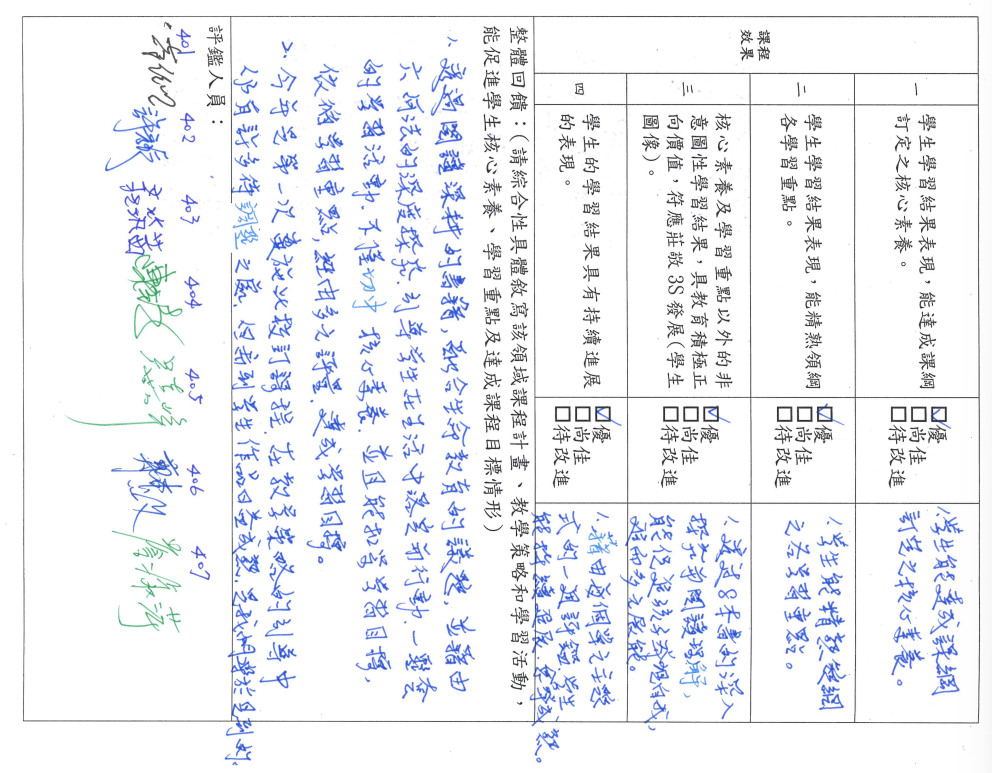 課程
效果
一
學生學習結果表現，能達成課綱
訂定之核心素養。
☑優
□尚佳
□待改進
1、學生能達成課綱
訂定之核心素養。
二
學生學習結果表現，能精熟領綱
各學習重點。
☑優
□尚佳
□待改進
1、學生能精熟領綱
之各學習重點。
三
核心素養及學習重點以外的非
意圖性學習結果，具教育積極正
向價值，符應莊敬3S發展(學生
圖像)。
☑優
□尚佳
□待改進
1、透過8本書的深入
探究並閱讀理解，
能促進孩子發現自我，
進而多元展能。
四
學生的學習結果具有持續進展
的表現。
☑優
□尚佳
□待改進
1、藉由每個單元主題
式的一週評鑑，學生
能持續進展
整體回饋：(請綜合性具體敘寫該領域課程計畫、教學策略和學習活動，
能促進學生核心素養、學習重點及達成課程目標情形)
1、透過閱讀課外的書籍，融合生命教育的議題，並藉由
六何法的深度探究，引導學生在生活中落實前行動，一整套
的學習活動，不僅切中核心素養，並且能扣緊學習目標，
依循學習重點，經由多元評量，達成學習目標。
2、今年是第一次實施此校訂課程，在教學策略的引導中
仍有許多待調整之處，但看到學生作品日益成熟，是我們樂於見到的。
評鑑人員：
401
402
403
404
405
406
407